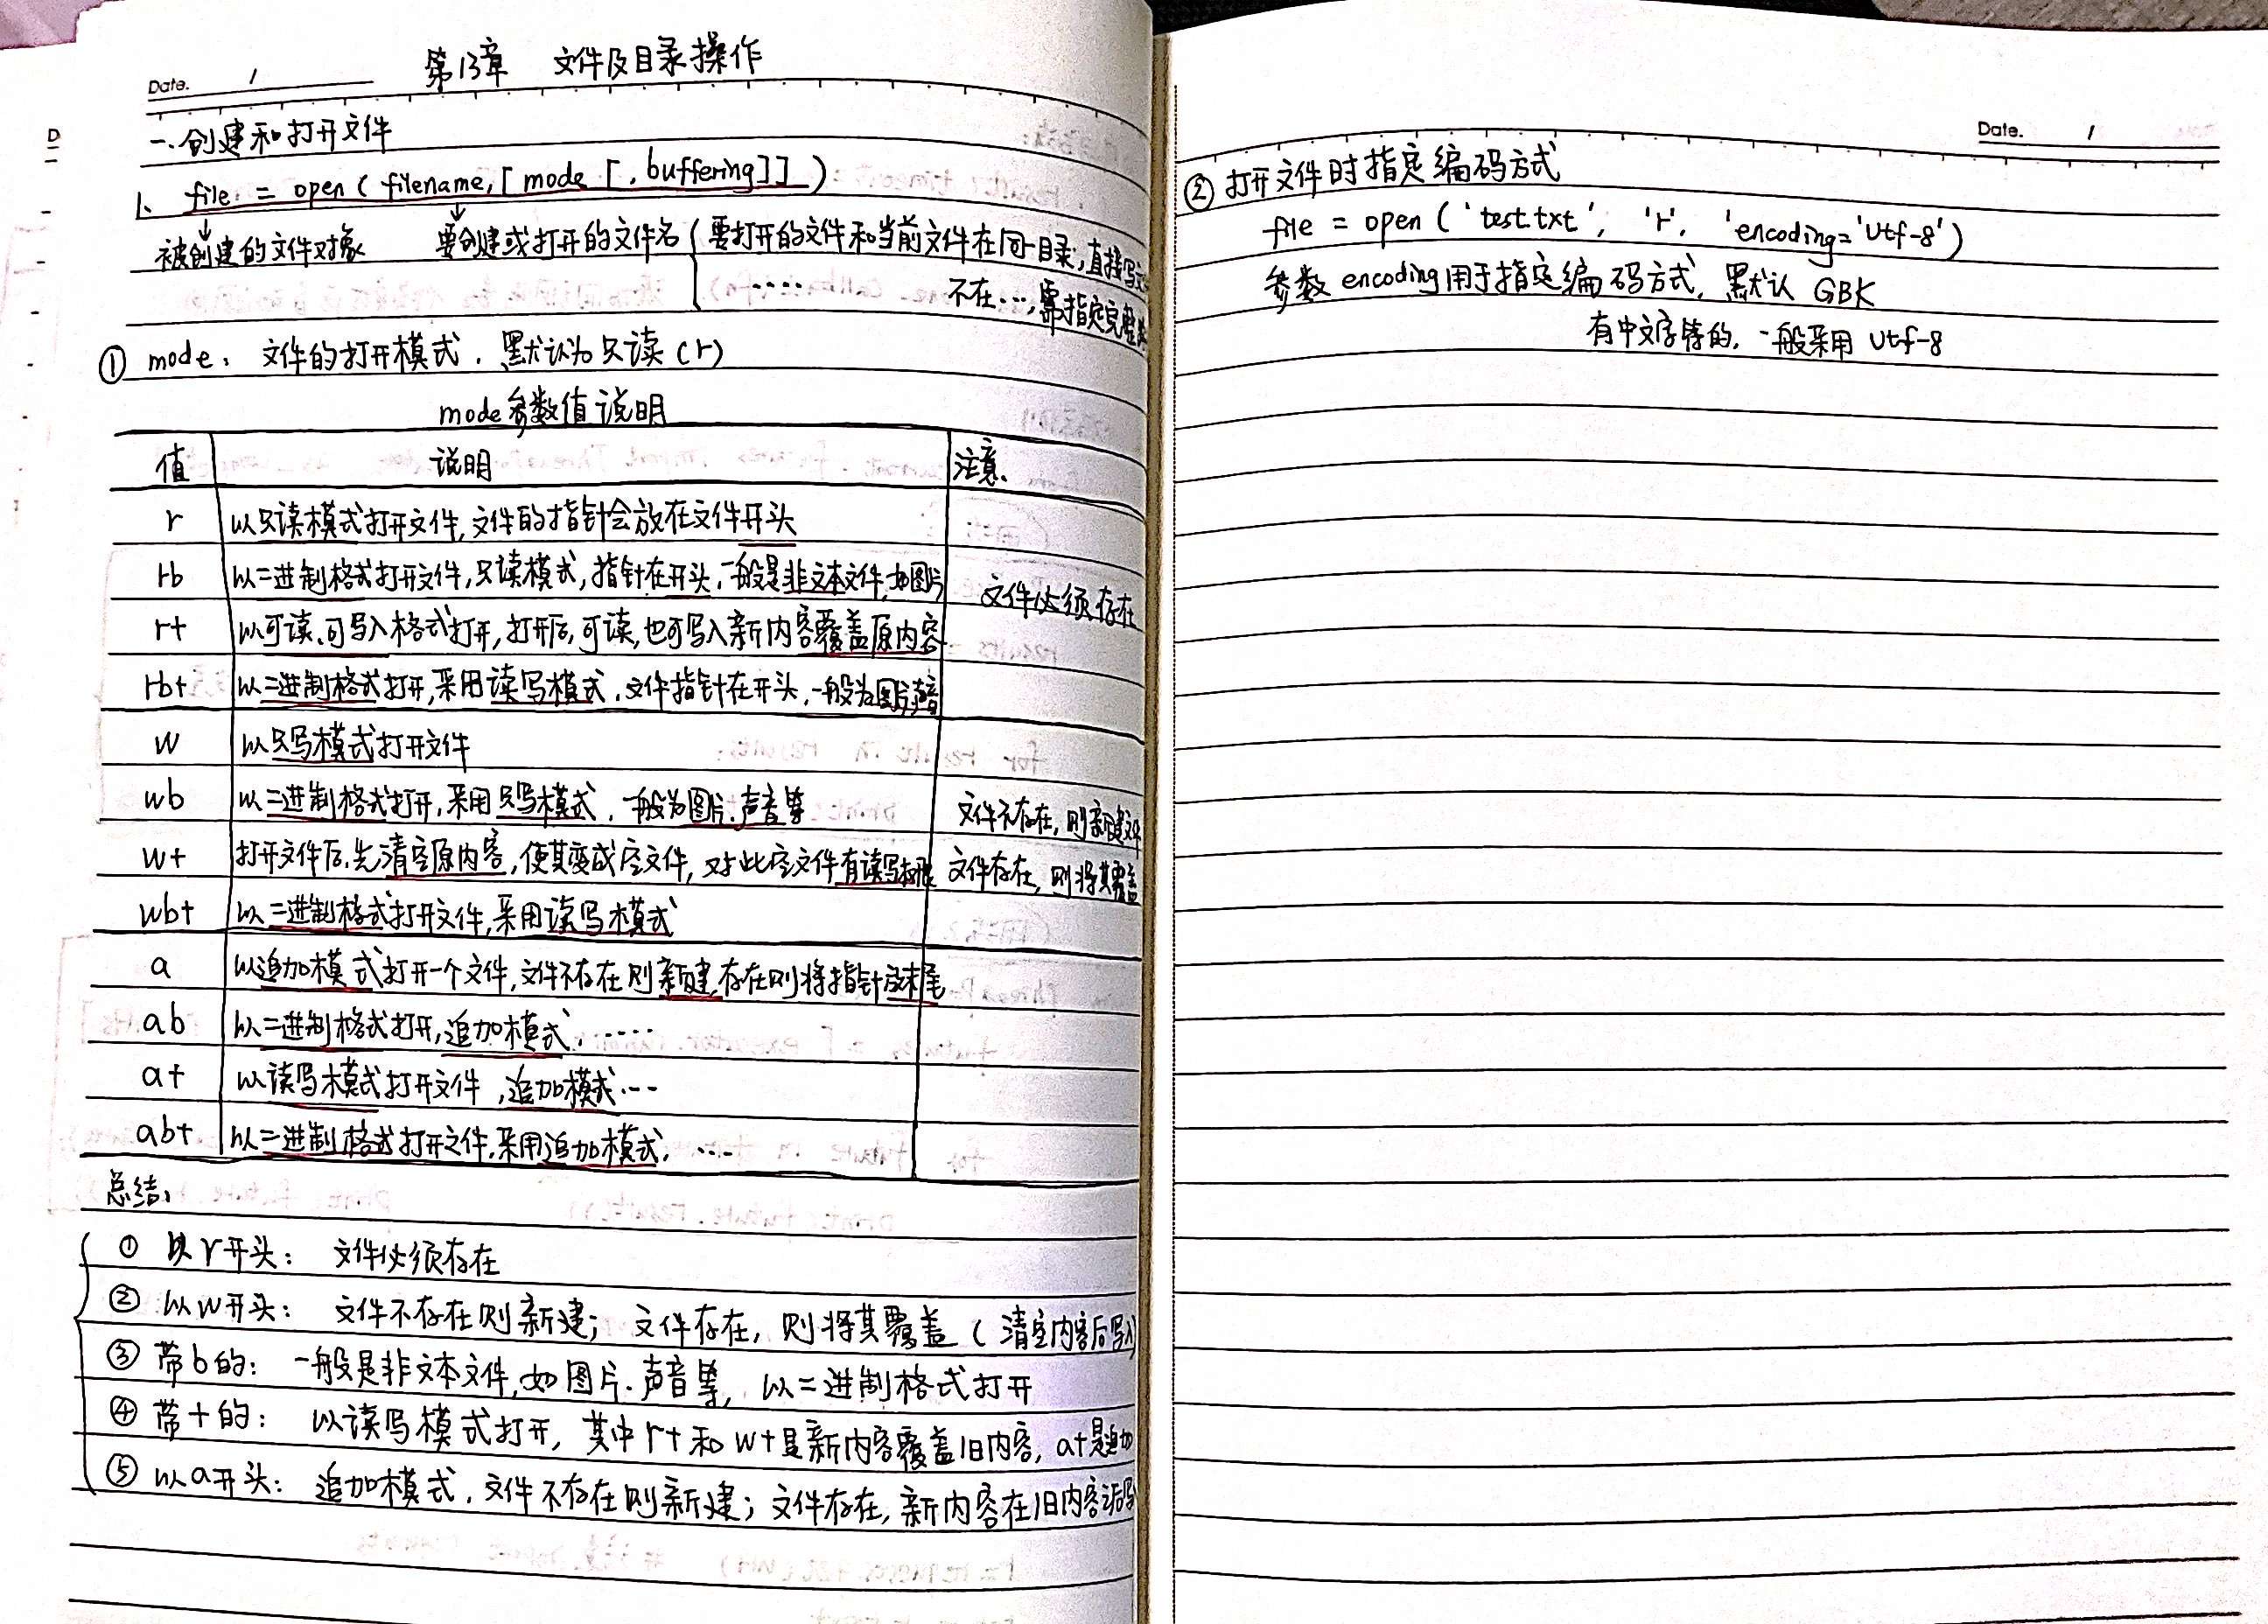 Date. /
第13章 文件及目录操作
一.创建和打开文件
1、 file = open ( filename,[ mode [ , buffering]] )
被创建的文件对象 要创建或打开的文件名 { 要打开的文件和当前文件在同一目录,直接写文
····· 不在···,需指定完整
① mode: 文件的打开模式,默认为只读 (r)
mode参数值说明
值 说明 注意
r 以只读模式打开文件,文件的指针会放在文件开头
rb 以二进制格式打开文件,只读模式,指针在开头,一般是非文本文件,如图片
文件必须存在
r+ 以可读、可写入格式打开,打开后,可读,也可写入新内容覆盖原内容
rb+ 以二进制格式打开,采用读写模式,文件指针在开头,一般为图片、
w 以只写模式打开文件
wb 以二进制格式打开,采用只写模式,一般为图片、声音等 文件不存在,则新建文件
w+ 打开文件后,先清空原内容,使其变成空文件,对此空文件有读写权限 文件存在,则将其覆盖
wb+ 以二进制格式打开文件,采用读写模式
a 以追加模式打开一个文件,文件不存在则新建,存在则将指针放末尾
ab 以二进制格式打开,追加模式,·····
a+ 以读写模式打开文件,追加模式···
ab+ 以二进制格式打开文件,采用追加模式, ····
总结:
① 以r开头: 文件必须存在
② 以w开头: 文件不存在则新建; 文件存在,则将其覆盖 ( 清空内容后写入)
③ 带b的: 一般是非文本文件,如图片、声音等, 以二进制格式打开
④ 带+的: 以读写模式打开, 其中r+和w+是新内容覆盖旧内容, a+是追加
⑤ 以a开头: 追加模式,文件不存在则新建; 文件存在,新内容在旧内容后写
Date. /
② 打开文件时指定编码方式
file = open ( 'test.txt', 'r', 'encoding='utf-8')
参数 encoding用于指定编码方式, 默认 GBK
有中文字符的, 一般采用 utf-8